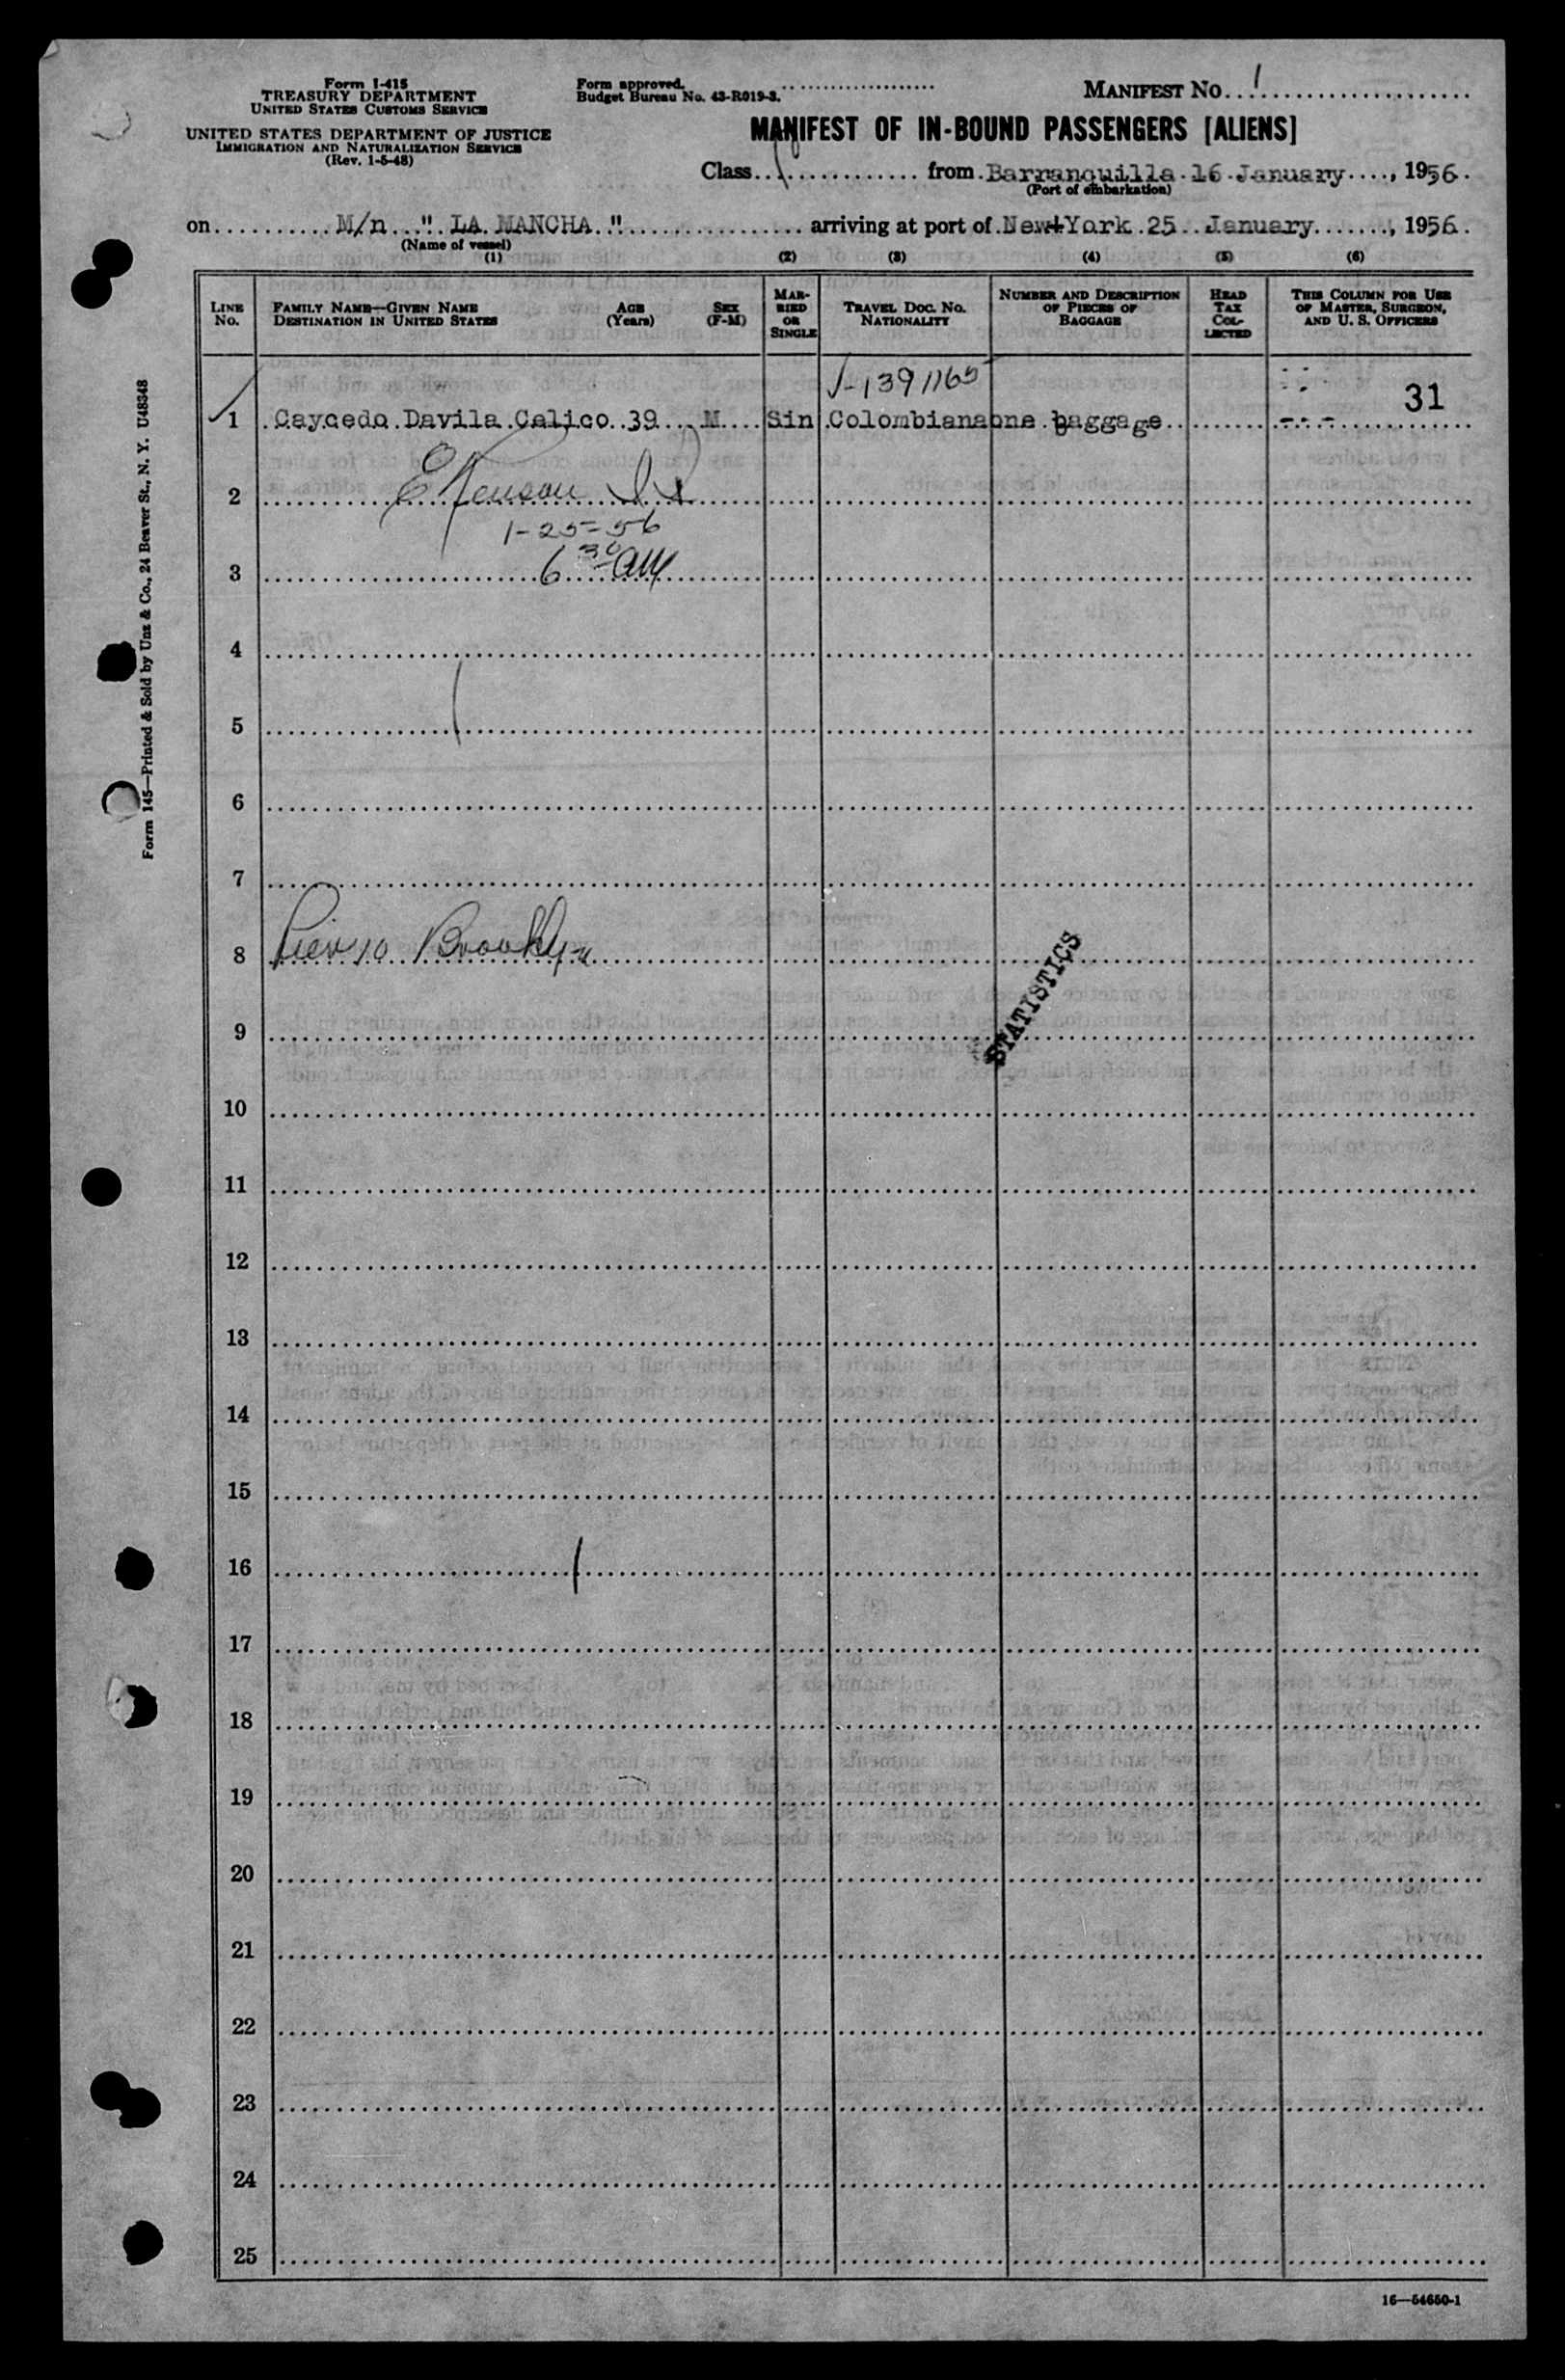 Form I-415
TREASURY DEPARTMENT
UNITED STATES CUSTOMS SERVICE
UNITED STATES DEPARTMENT OF JUSTICE
IMMIGRATION AND NATURALIZATION SERVICE
(Rev. 1-5-48)
Form approved.
Budget Bureau No. 43-R019-3.
MANIFEST NO. 1
MANIFEST OF IN-BOUND PASSENGERS [ALIENS]
Class from Barranquilla 16 January, 1956.
(Port of embarkation)
on M/n " LA MANCHA " arriving at port of New York 25 January, 1956.
(Name of vessel)
(1) (2) (3) (4) (5) (6)
LINE No. FAMILY NAME—GIVEN NAME DESTINATION IN UNITED STATES AGE (Years) SEX (F-M) MARRIED OR SINGLE TRAVEL DOC. NO. NATIONALITY NUMBER AND DESCRIPTION OF PIECES OF BAGGAGE HEAD TAX COLLECTED THIS COLUMN FOR USE OF MASTER, SURGEON, AND U. S. OFFICERS
J-1391165
31
1 Caycedo Davila Calico 39 M Sin Colombiana one baggage
2
1-25-56
3 6 30 AM
4
5
6
7
8 Pier 10 Brooklyn
STATISTICS
9
10
11
12
13
14
15
16
17
18
19
20
21
22
23
24
25
16—54650-1
Form 145—Printed & Sold by Unz & Co., 24 Beaver St., N. Y. U48348